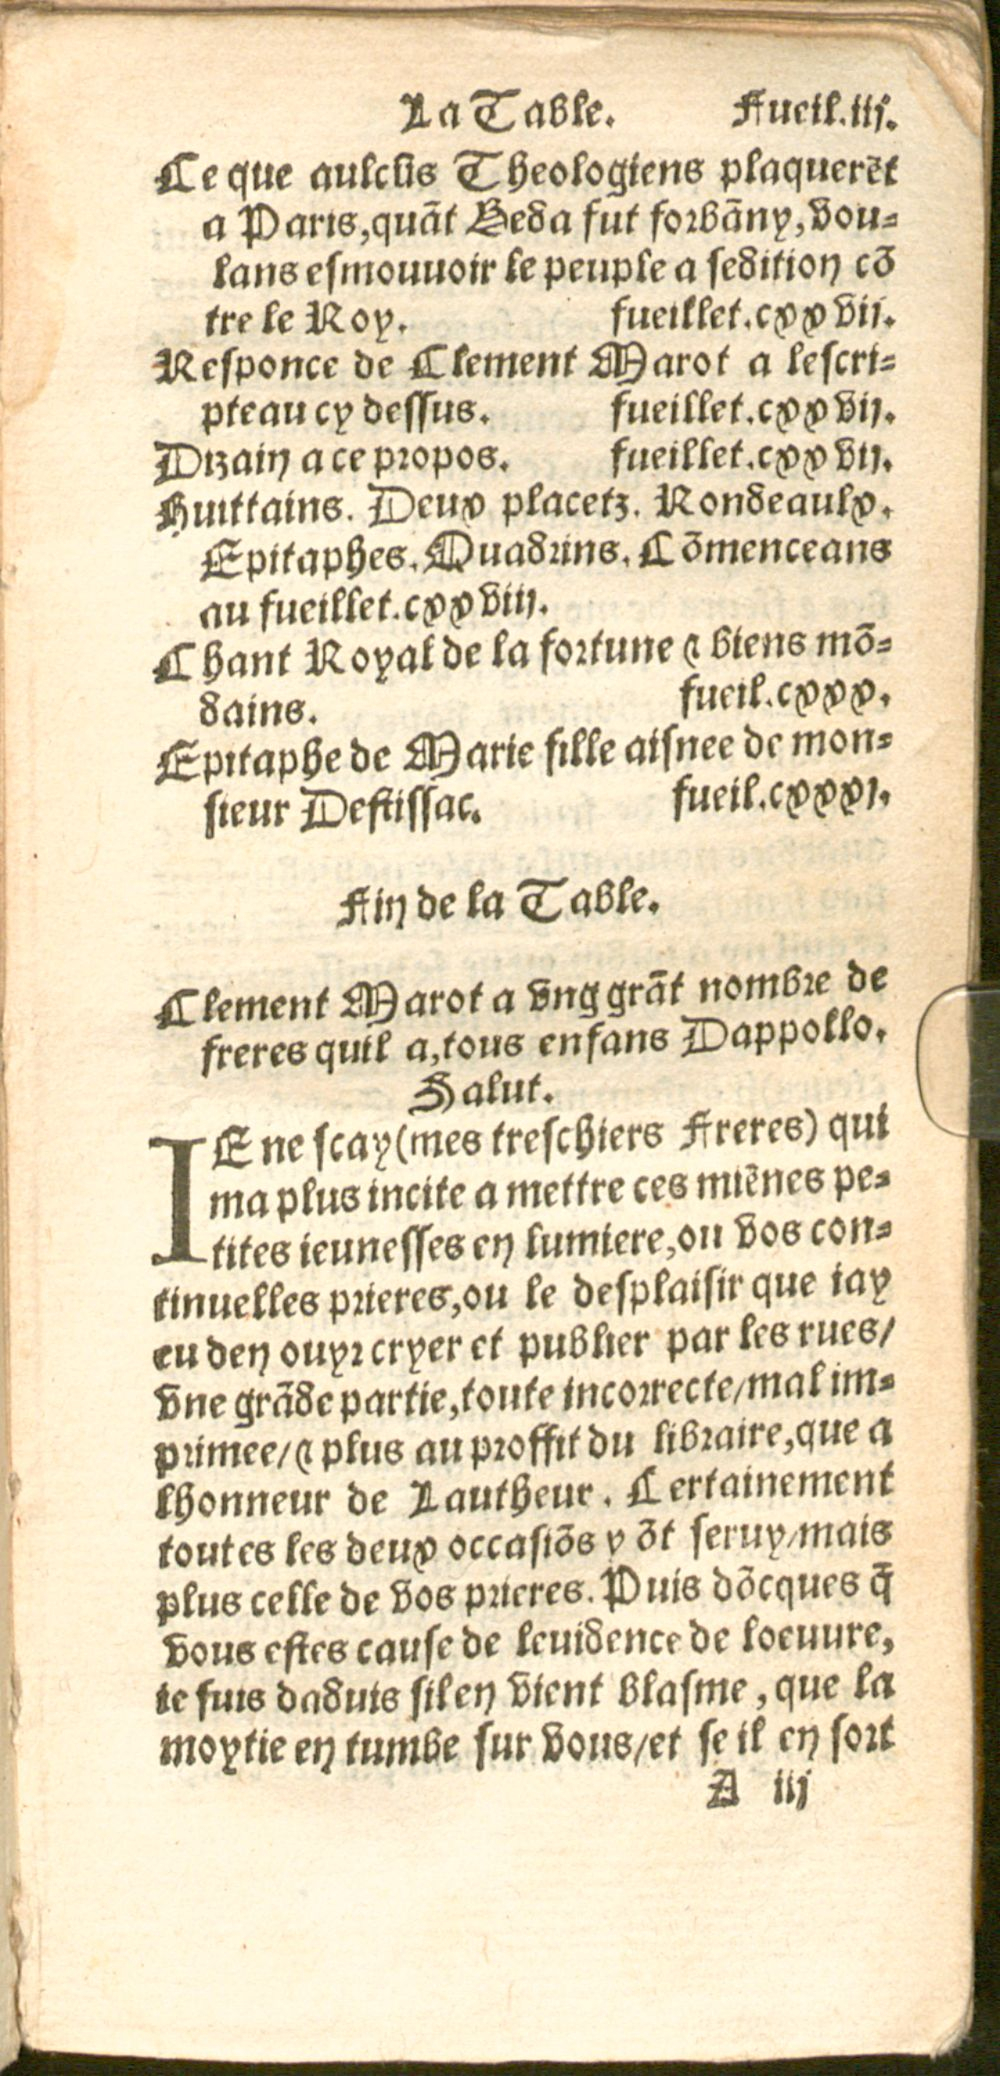 La Table. Fueil.iij.
Ce que aulcūs Theologiens plaquerēt
a Paris,quāt Beda fut forbāny, vou-
lans esmouuoir le peuple a sedition cō
tre le Roy. fueillet.cxxvij.
Responce de Clement Marot a lescri-
pteau cy dessus. fueillet.cxxvij.
Dizain a ce propos. fueillet.cxxvij.
Huittains. Deux placetz. Rondeaulx.
Epitaphes. Quadrins. Cōmenceans
au fueillet.cxxviij.
Chant Royal de la fortune & biens mō-
dains. fueil.cxxx.
Epitaphe de Marie fille aisnee de mon-
sieur Destissac. fueil.cxxxj.
Fin de la Table.
Clement Marot a vng grāt nombre de
freres quil a,tous enfans Dappollo.
Salut.
IE ne scay(mes treschiers Freres) qui
ma plus incite a mettre ces miēnes pe-
tites ieunesses en lumiere,ou vos con-
tinuelles prieres,ou le desplaisir que iay
eu den ouyr cryer et publier par les rues/
vne grāde partie,toute incorrecte/mal im-
primee/& plus au proffit du libraire,que a
lhonneur de Lautheur. Certainement
toutes les deux occasiōs y ōt seruy/mais
plus celle de vos prieres. Puis dōcques q̄
vous estes cause de leuidence de loeuure,
ie suis daduis sil en vient blasme, que la
moytie en tumbe sur vous/et se il en sort
A iij